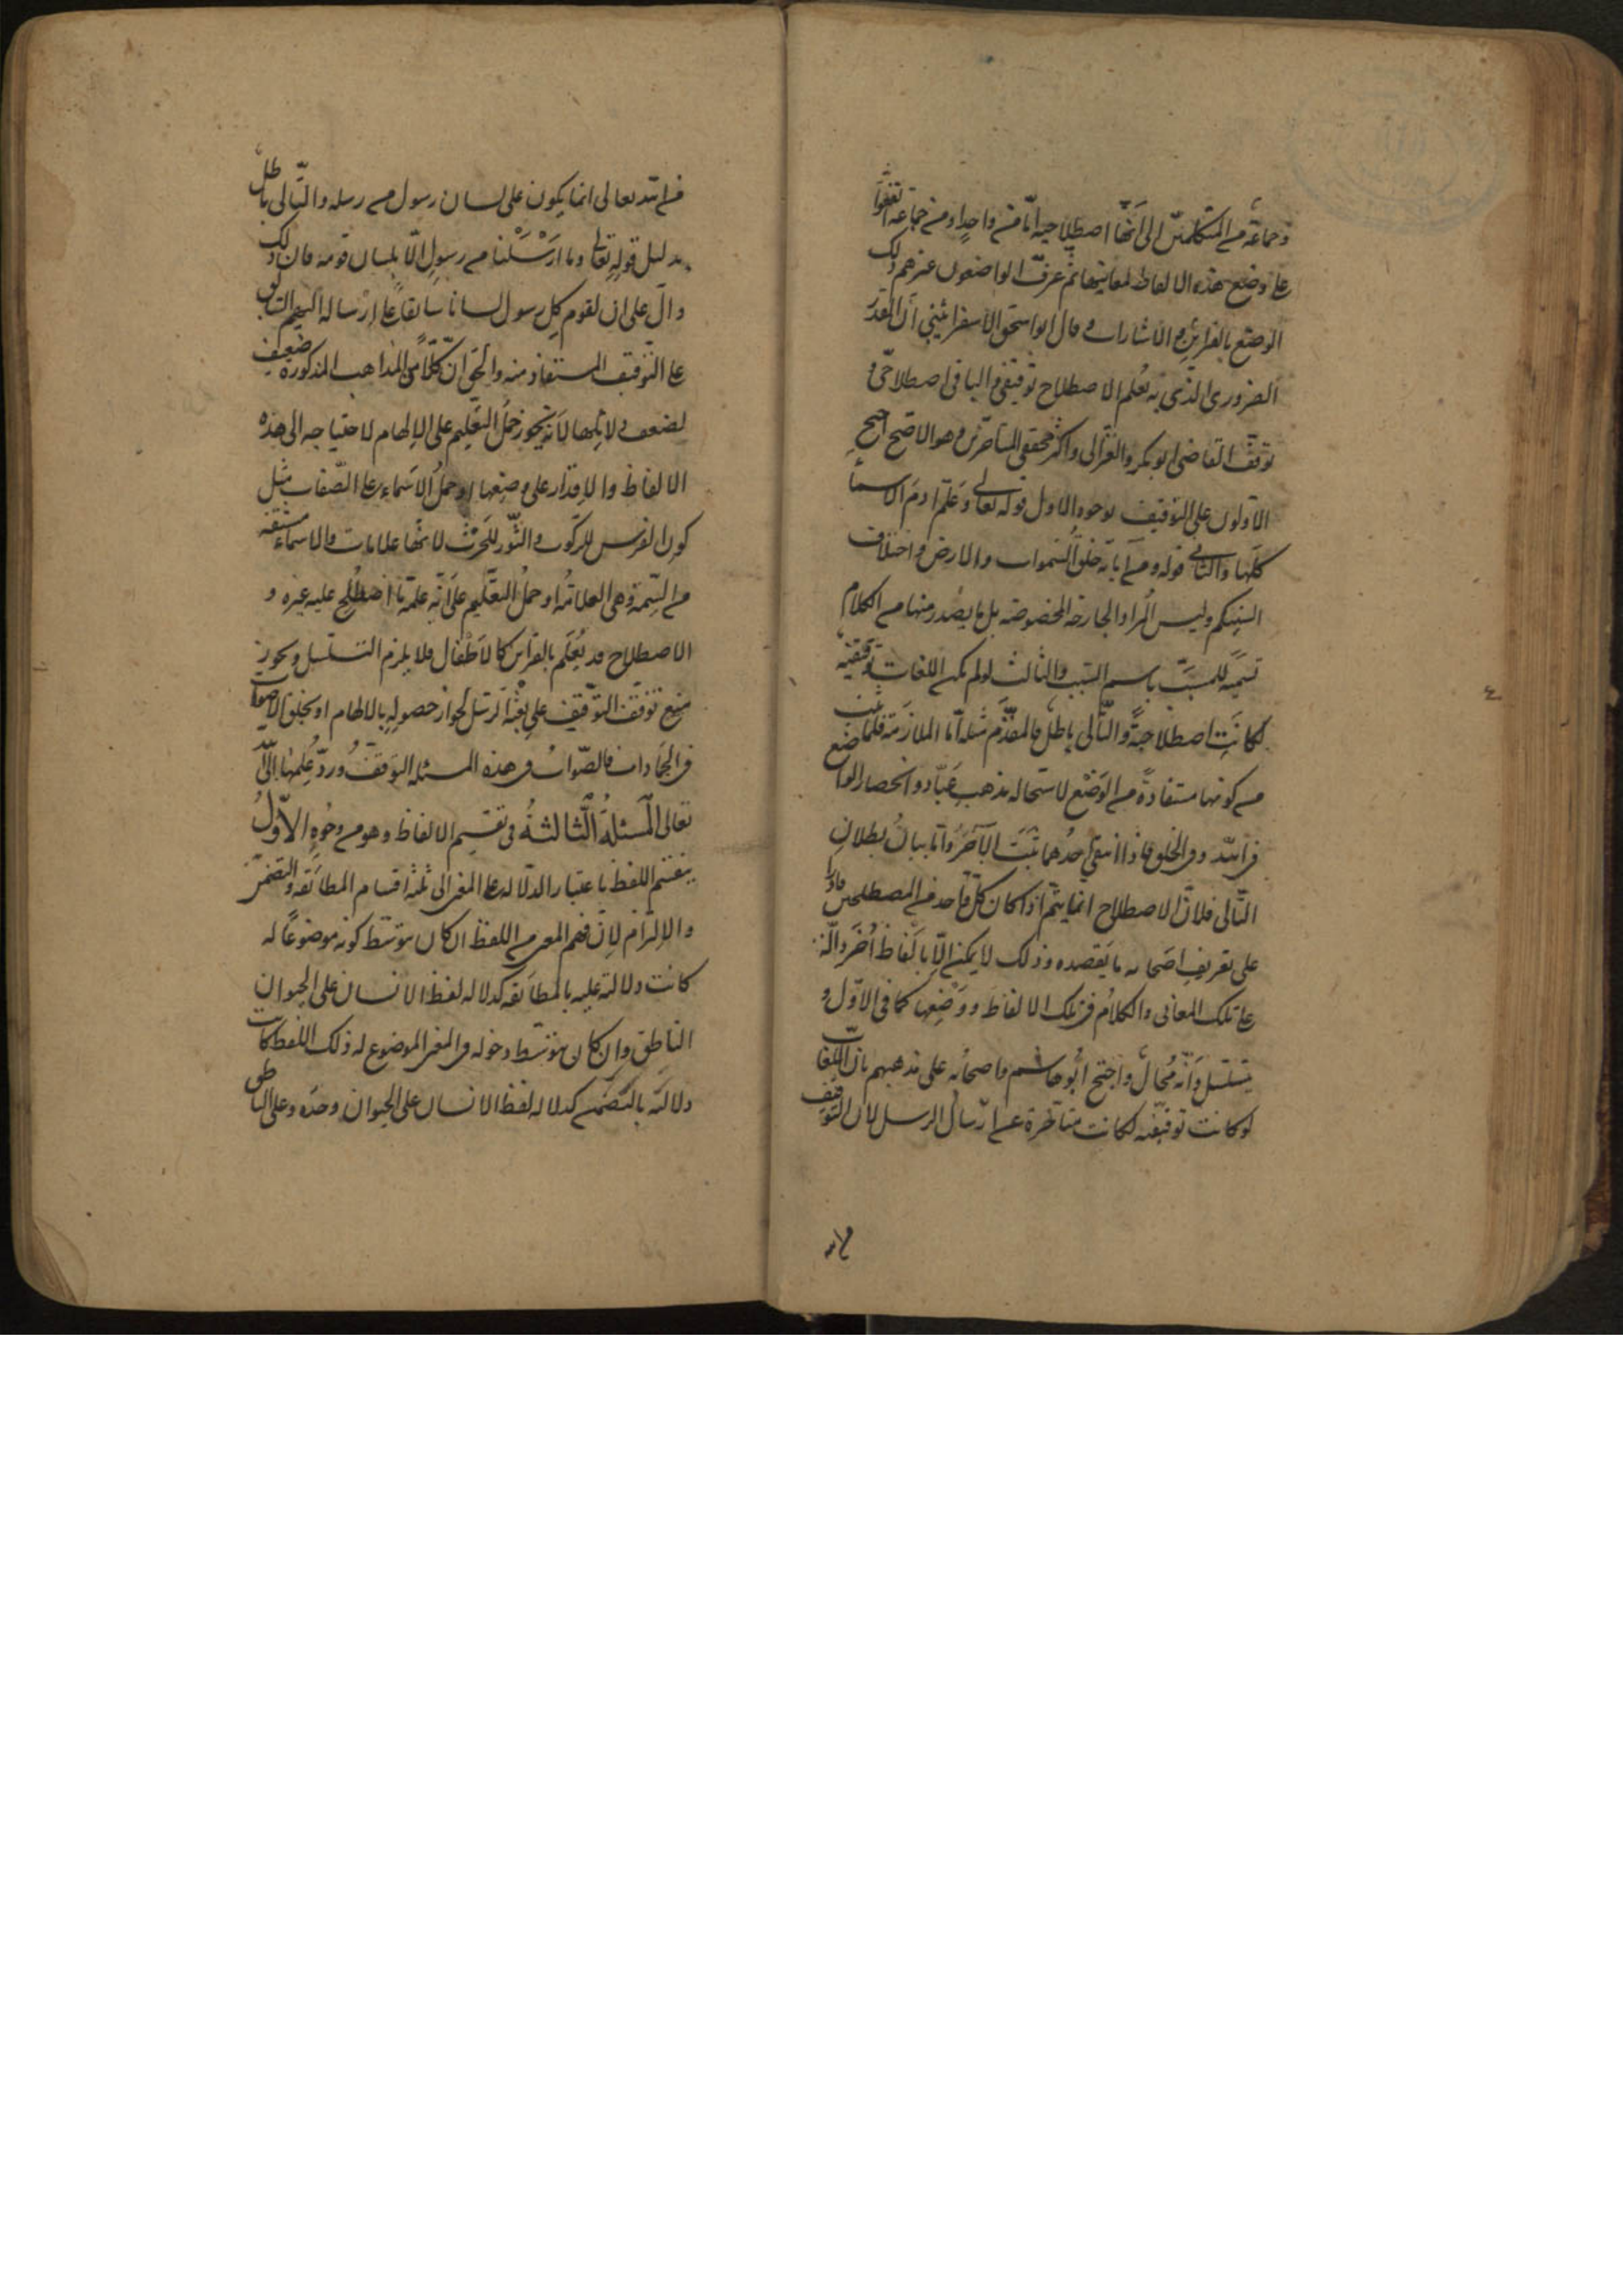 وجماعة من المتكلمين الى انها اصطلاحية اما من واحد او من جماعة اتفقوا
على وضع هذه الالفاظ لمعانيها ثم عرف الواضعون غيرهم ذلك
الوضع بالقراين والاشارات وقال ابو اسحق الاسفرائيني ان القدر
الضروري الذي به يعلم الاصطلاح توقيفي والباقي اصطلاحي و
توقف القاضي ابو بكر والغزالي واكثر محققي المتأخرين وهو الاصح احتج
الاولون على التوقيف بوجوه الاول قوله تعالى وعلم ادم الاسماء
كلها والثاني قوله ومن آياته خلق السموات والارض واختلاف
السنتكم وليس المراد الجارحة المخصوصة بل ما يصدر منها من الكلام
تسمية للمسبب باسم السبب والثالث لو لم يكن اللغات توقيفية
لكانت اصطلاحية والتالي باطل فالمقدم مثله اما الملازمة فلما ثبت
من كونها مستفادة من الوضع لاستحالة مذهب عباد وانحصار الواضع
في الله وفي الخلق فاذا انتفى احدهما ثبت الآخر واما بيان بطلان
التالي فلان الاصطلاح انما يتم اذا كان كل واحد من المصطلحين قادرا
على تعريف اصحابه ما يقصده وذلك لا يمكن الا بالفاظ اخر دالة
على تلك المعاني والكلام في تلك الالفاظ ووضعها كما في الاول و
يتسلسل وانه محال واحتج ابو هاشم واصحابه على مذهبهم بان اللغات
لو كانت توقيفية لكانت متأخرة عن ارسال الرسل لان التوقيف
من الله تعالى انما يكون على لسان رسول من رسله والتالي باطل
بدليل قوله تعالى وما ارسلنا من رسول الا بلسان قومه فان ذلك
دال على ان لقوم كل رسول لسانا سابقا على ارساله اليهم السابق
على التوقيف المستفاد منه والحق ان كلا من المذاهب المذكورة ضعيف
لضعف دلائلها لانه يجوز حمل التعليم على الالهام لاحتياجه الى هذه
الالفاظ والاقدار على وضعها او حمل الاسماء على الصفات مثل
كون الفرس للركوب والثور للحرث لانها علامات والاسماء مشتقة
من السمة وهي العلامة او حمل التعليم على انه علمه ما اصطلح عليه غيره و
الاصطلاح قد يعلم بالقراين كالاطفال فلا يلزم التسلسل ويجوز
منع توقف التوقيف على بعثة الرسل لجواز حصوله بالالهام او بخلق الاصوات
في الجمادات فالصواب في هذه المسئلة التوقف ورد علمها الى الله
تعالى المسئلة الثالثة في تقسيم الالفاظ وهو من وجوه الاول
ينقسم اللفظ باعتبار الدلالة على المعنى الى ثلثة اقسام المطابقة والتضمن
والالتزام لان فهم المعنى من اللفظ ان كان بتوسط كونه موضوعا له
كانت دلالته عليه بالمطابقة كدلالة لفظ الانسان على الحيوان
الناطق وان كان بتوسط دخوله في المعنى الموضوع له ذلك اللفظ كانت
دلالته بالتضمن كدلالة لفظ الانسان على الحيوان وحده وعلى الناطق